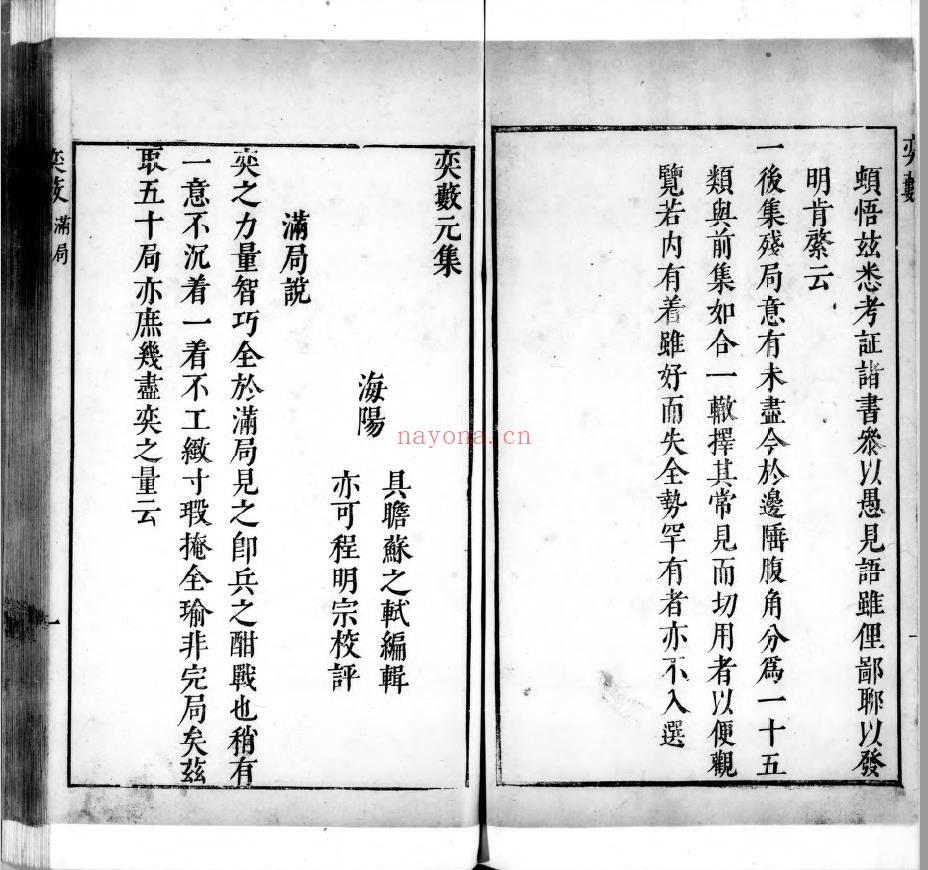 奕藪
頓悟玆悉考証諸書叅以愚見語雖俚鄙聊以發
明肯綮云
一後集殘局意有未盡今於邊陲腹角分爲一十五
類與前集如合一轍擇其常見而切用者以便觀
覽若内有着雖好而失全勢罕有者亦不入選
奕藪元集
海陽
具瞻蘇之軾編輯
亦可程明宗校評
滿局說
奕之力量智巧全於滿局見之卽兵之酣戰也稍有
一意不沉着一着不工緻寸瑕掩全瑜非完局矣玆
取五十局亦庶幾盡奕之量云
奕藪 滿局
一
nayona.cn